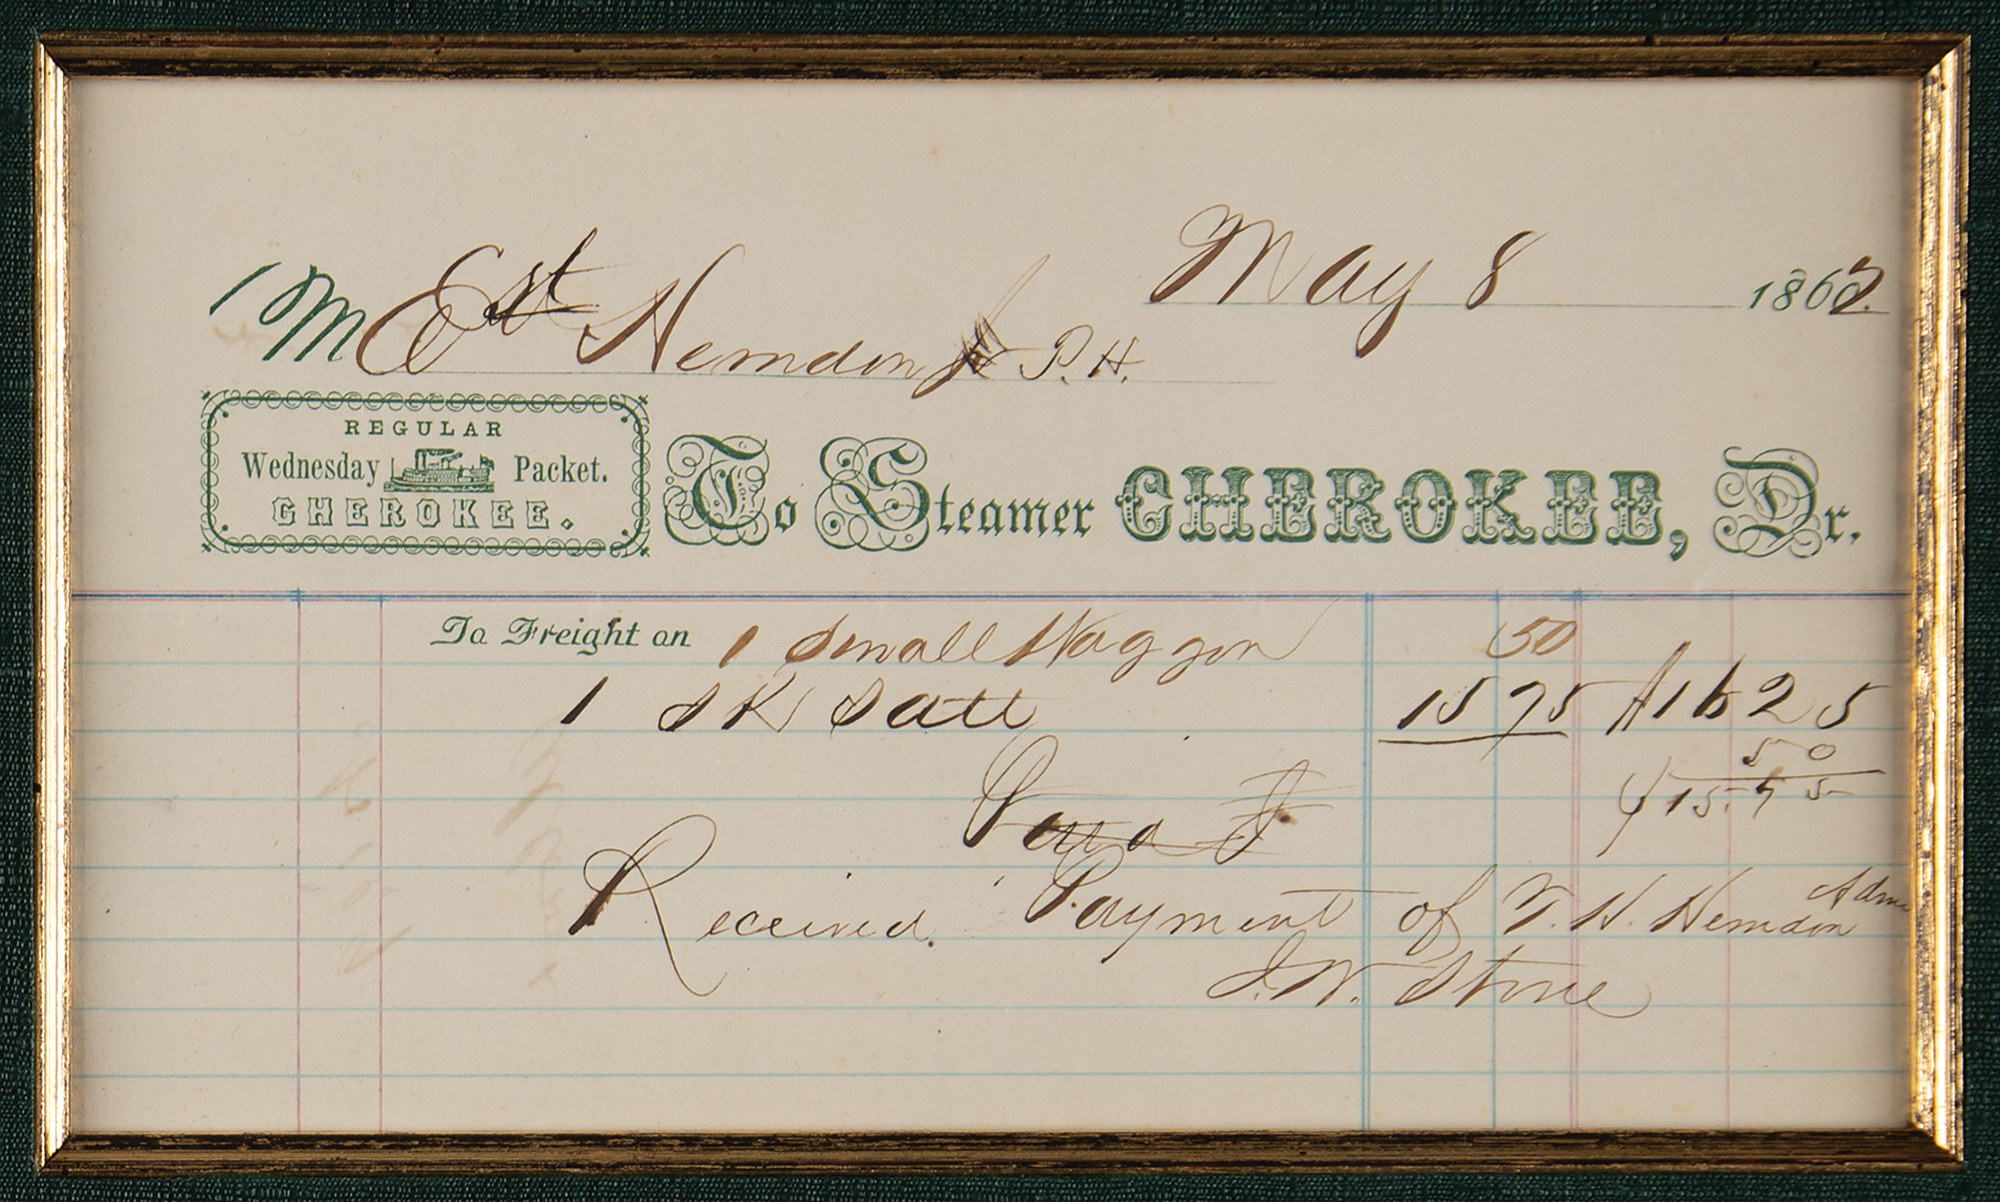 May 8 1862
M Est Herndon P.H.
REGULAR
Wednesday Packet.
CHEROKEE.
To Steamer CHEROKEE, Dr.
To Freight on 1 Small Waggon 50
1 SK Salt 15 75 $16 25
50
$15.75
Received Payment of T. H. Herndon Adm
J. W. Stone